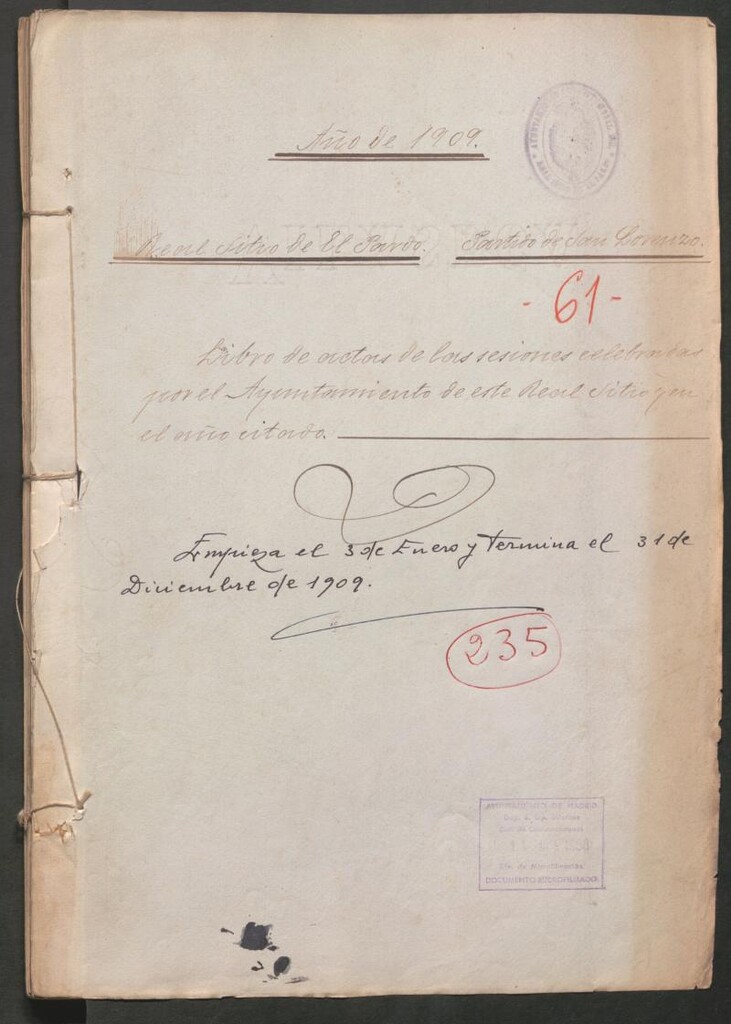 Año de 1909.
Real Sitio de El Pardo. Partido de San Lorenzo.
- 61 -
Libro de actas de las sesiones celebradas
por el Ayuntamiento de este Real Sitio, en
el año citado.
Empieza el 3 de Enero y termina el 31 de
Diciembre de 1909.
235
AYUNTAMIENTO DE MADRID
DOCUMENTO